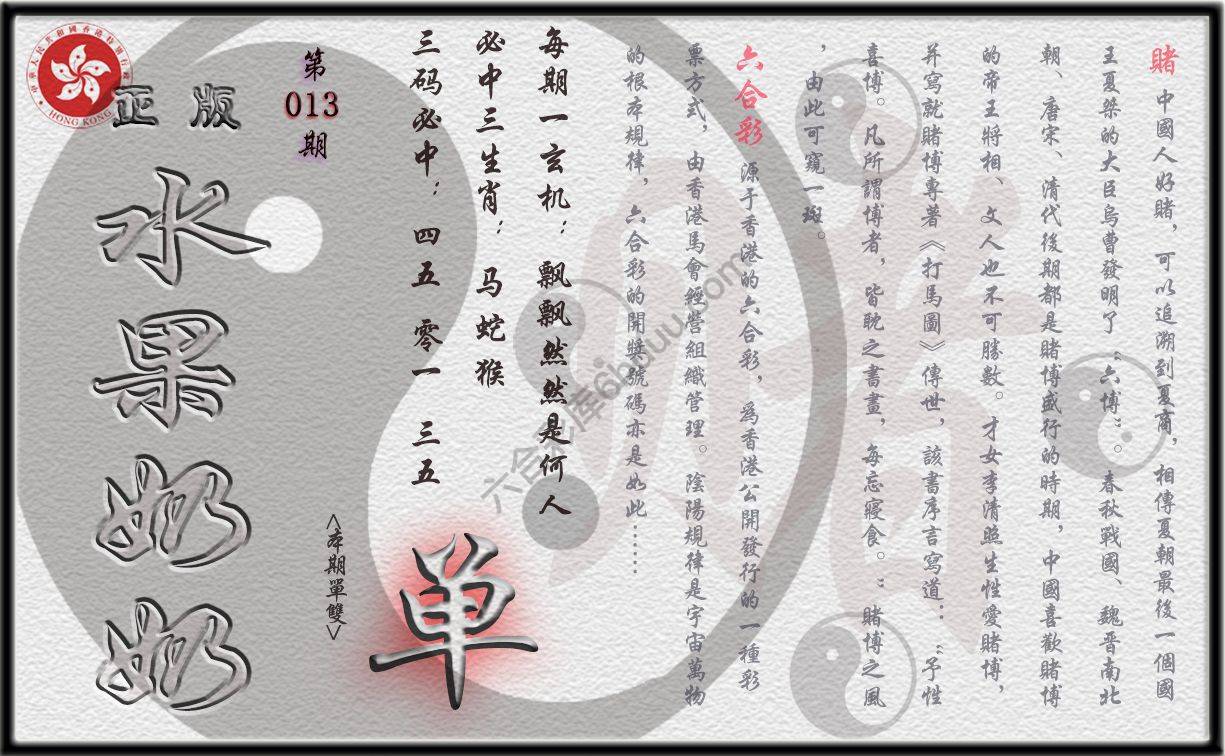 賭 中國人好賭，可以追溯到夏商，相傳夏朝最後一個國
王夏桀的大臣烏曹發明了“六博”。春秋戰國、魏晋南北
朝、唐宋、清代後期都是賭博盛行的時期，中國喜歡賭博
的帝王將相、文人也不可勝數。才女李清照生性愛賭博，
并寫就賭博專著《打馬圖》傳世，該書序言寫道：“予性
喜博。凡所謂博者，皆耽之書畫，每忘寢食。”賭博之風
，由此可窺一斑。
六合彩 源于香港的六合彩，爲香港公開發行的一種彩
票方式，由香港馬會經營組織管理。陰陽規律是宇宙萬物
的根本規律，六合彩的開獎號碼亦是如此……
每期一玄机：飘飘然然是何人
必中三生肖：马蛇猴
三码必中：四五 零一 三五
第
013
期
正版
水果奶奶
<本期單雙>
单
中華人民共和國香港特別行政區
HONG KONG
六合彩库6bbuu.com